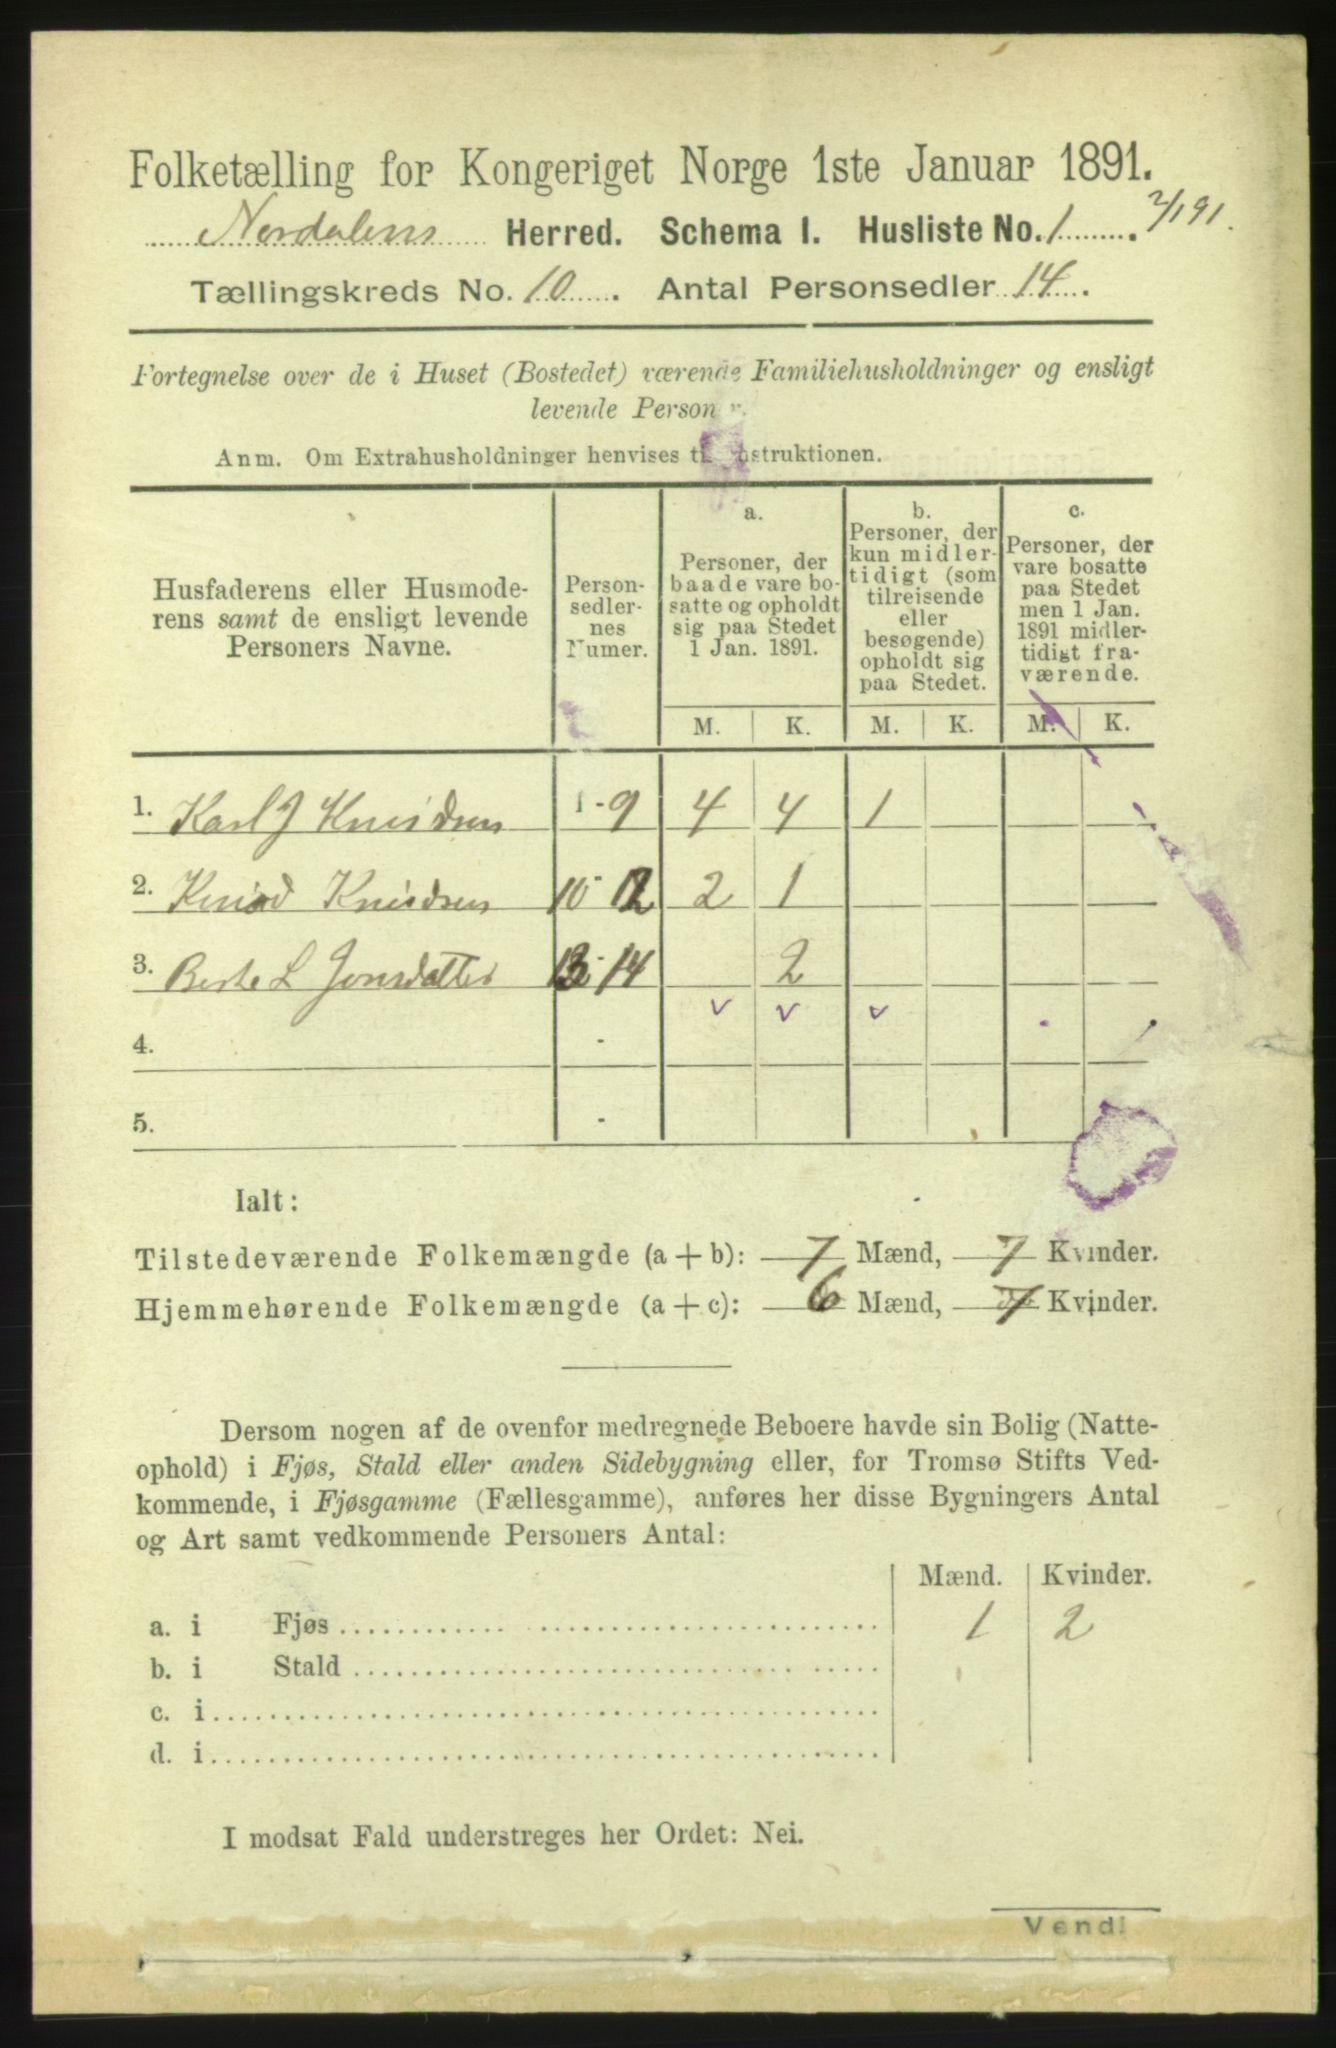 Folketælling for Kongeriget Norge 1ste Januar 1891.
Nordalens Herred. Schema I. Husliste No. 1. 2/1 91.
Tællingskreds No. 10. Antal Personsedler 14.
Fortegnelse over de i Huset (Bostedet) værende Familiehusholdninger og ensligt
levende Person r.
Anm. Om Extrahusholdninger henvises t nstruktionen.
Husfaderens eller Husmode-
rens samt de ensligt levende
Personers Navne.
Person-
sedler-
nes
Numer.
a.
Personer, der
baade vare bo-
satte og opholdt
sig paa Stedet
1 Jan. 1891.
b.
Personer, der
kun midler-
tidigt (som
tilreisende
eller
besøgende)
opholdt sig
paa Stedet.
c.
Personer, der
vare bosatte
paa Stedet
men 1 Jan.
1891 midler-
tidigt fra-
værende.
M. K. M. K. M. K.
1. Karl J Knudsen 1-9 4 4 1
2. Knud Knudsen 10-12 2 1
3. Berte L Jonsdatter 13-14 2
4. -
5. -
Ialt:
Tilstedeværende Folkemængde (a + b): 7 Mænd, 7 Kvinder.
Hjemmehørende Folkemængde (a + c): 6 Mænd, 7 Kvinder.
Dersom nogen af de ovenfor medregnede Beboere havde sin Bolig (Natte-
ophold) i Fjøs, Stald eller anden Sidebygning eller, for Tromsø Stifts Ved-
kommende, i Fjøsgamme (Fællesgamme), anføres her disse Bygningers Antal
og Art samt vedkommende Personers Antal:
Mænd. Kvinder.
a. i Fjøs 1 2
b. i Stald
c. i
d. i
I modsat Fald understreges her Ordet: Nei.
Vend!